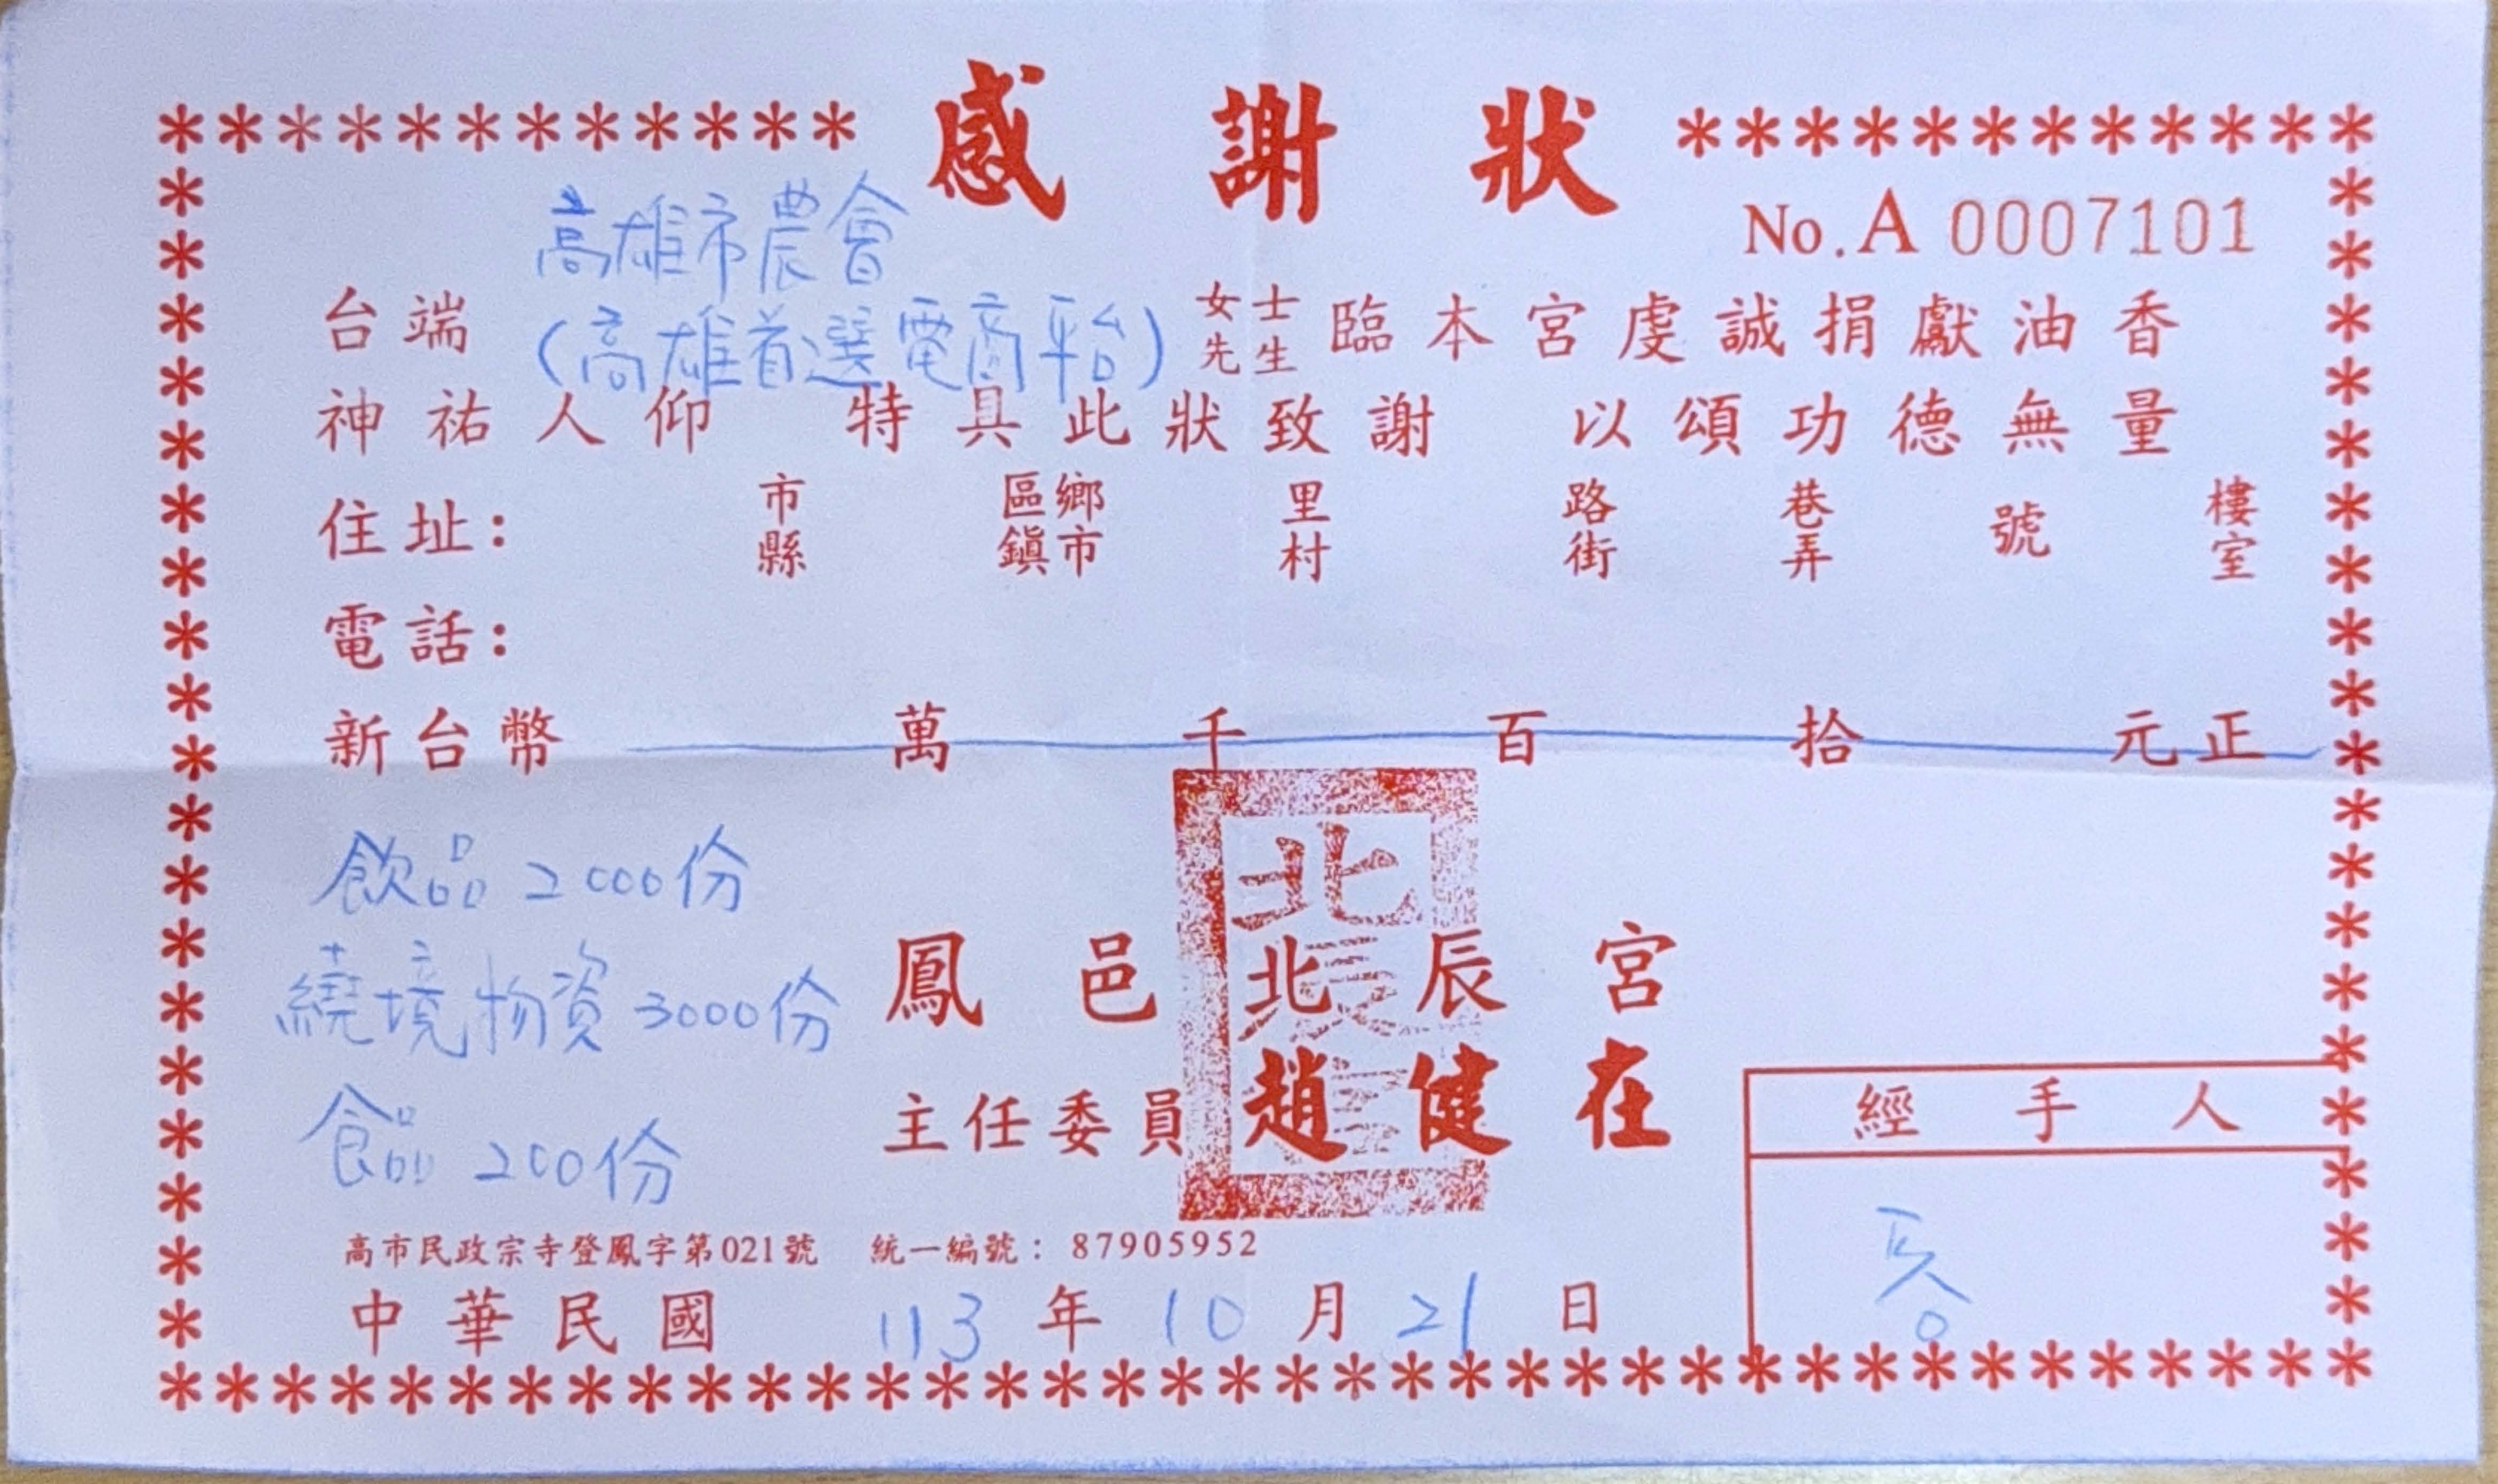 感謝狀
No.A 0007101
高雄市農會
台端 (高雄首選電商平台) 女士 先生 臨本宮虔誠捐獻油香
神祐人仰 特具此狀致謝 以頌功德無量
住址： 市縣 區鄉鎮市 里村 路街 巷弄 號 樓室
電話：
新台幣 萬 千 百 拾 元正
飲品2000份
繞境物資3000份
食品200份
鳳邑北辰宮
北辰宮
主任委員 趙健在
經手人
高市民政宗寺登鳳字第021號 統一編號：87905952
中華民國 113 年 10 月 21 日